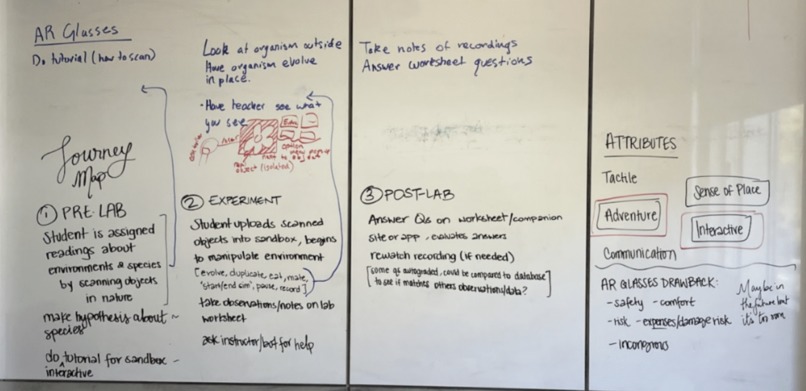 AR Glasses
Do tutorial (how to scan)
Journey
Map
① PRE-LAB
Student is assigned
readings about
environments & species
by scanning objects
in nature
make hypothesis about
species
do tutorial for sandbox
interactive
Look at organism outside
Have organism evolve
in place.
- Have teacher see what
you see
object (isolated)
② EXPERIMENT
Student uploads scanned
objects into sandbox, begins
to manipulate environment
[evolve, duplicate, eat, mate,
"start/end sim", pause, record]
take observations/notes on lab
worksheet
ask instructor/bot for help
Take notes of recordings
Answer worksheet questions
③ POST-LAB
Answer Qs on worksheet/companion
site or app, evaluates answers
rewatch recording (if needed)
[some qs autograded, could be compared to database
to see if matches others observations/data?]
ATTRIBUTES
Tactile
Sense of Place
Adventure
Interactive
Communication
AR GLASSES DRAWBACK:
- safety - comfort
- risk - expenses/damage risk
- incongrous
Maybe in
the future but
it's too